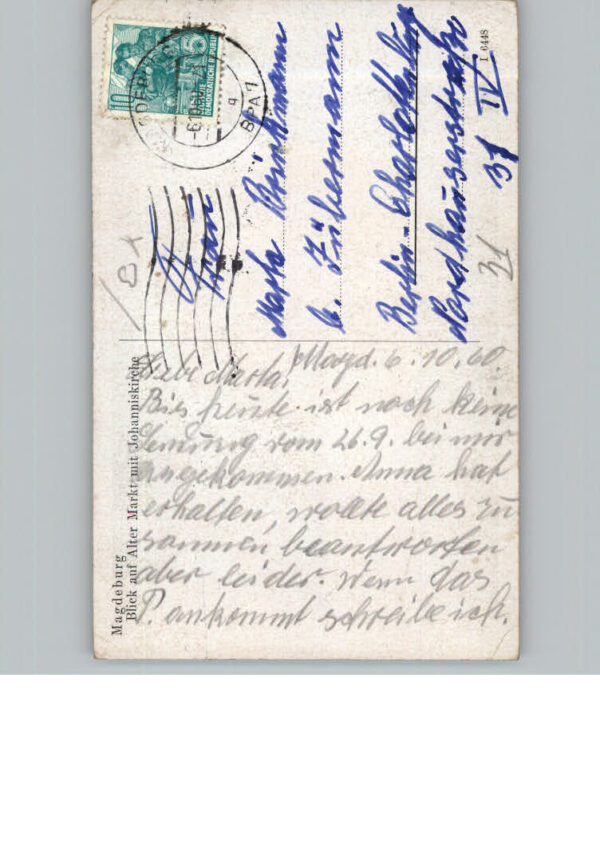 10
DEUTSCHE
DEMOKRATISCHE REPUBLIK
BPA 7
q
Frau
Marta Brinkmann
b. Zübermann
Berlin-Charlottenbg
Nordhauserstraße
31 IV
31
I 6448
Magdeburg
Blick auf Alter Markt mit Johanniskirche
Magd. 6.10.60.
Liebe Marta!
Bis heute ist noch keine
vom 26.9. bei mir
angekommen. Anna hat
erhalten, wollte alles zu
sammen beantworten
aber leider. Wenn das
P. ankommt schreibe ich.